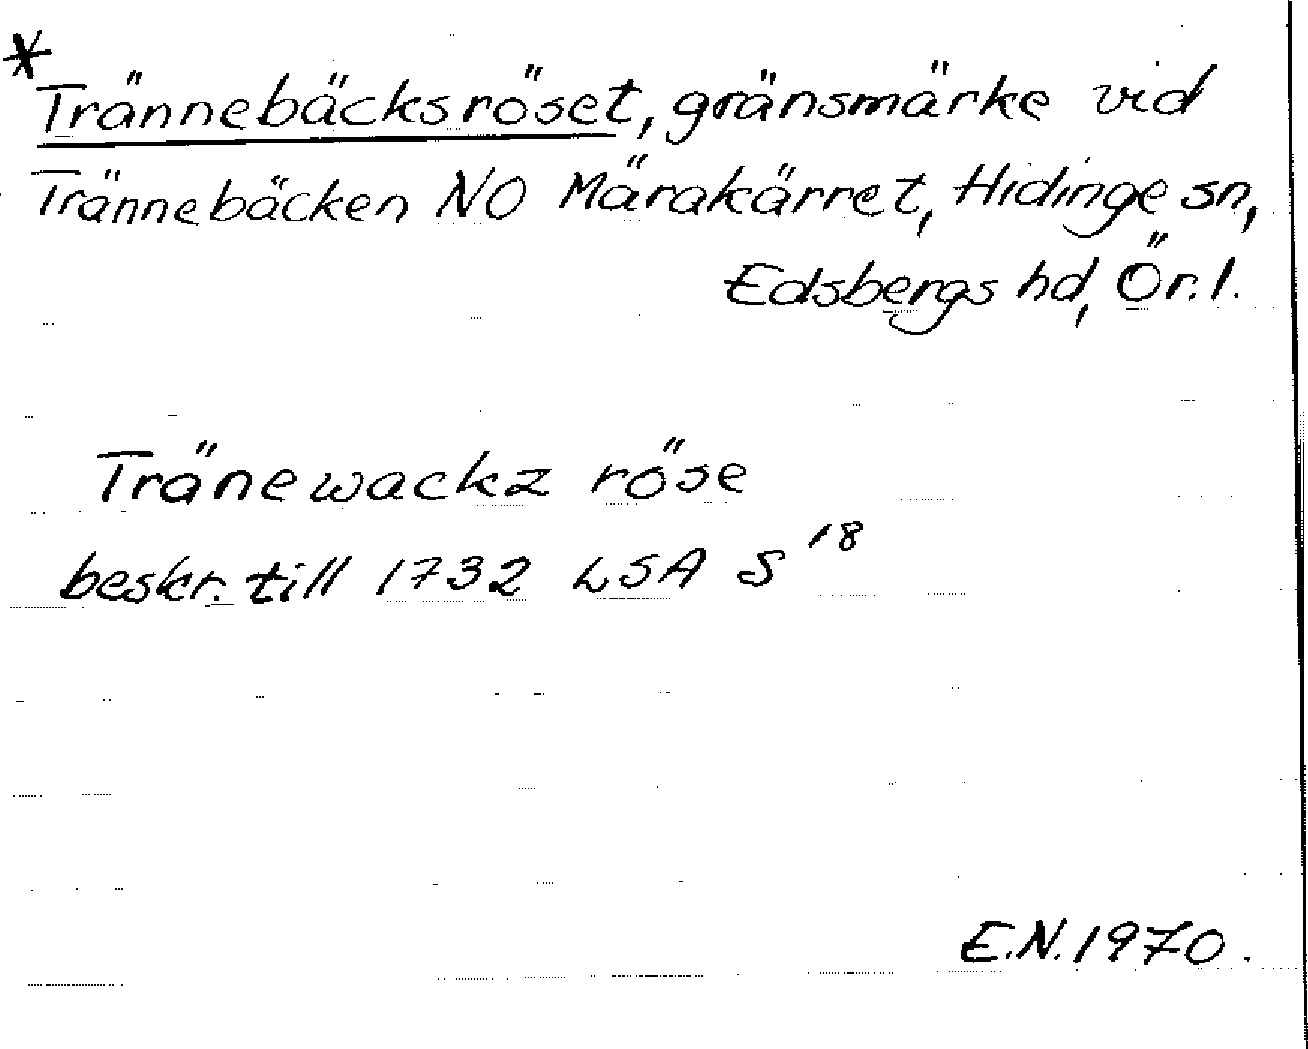 *
Trännebäcksröset, gränsmärke vid
Trännebäcken NO Märakärret, Hidinge sn,
Edsbergs hd, Ör. l.
Tränewackz röse
beskr. till 1732 LSA S 18
E.N. 1970.